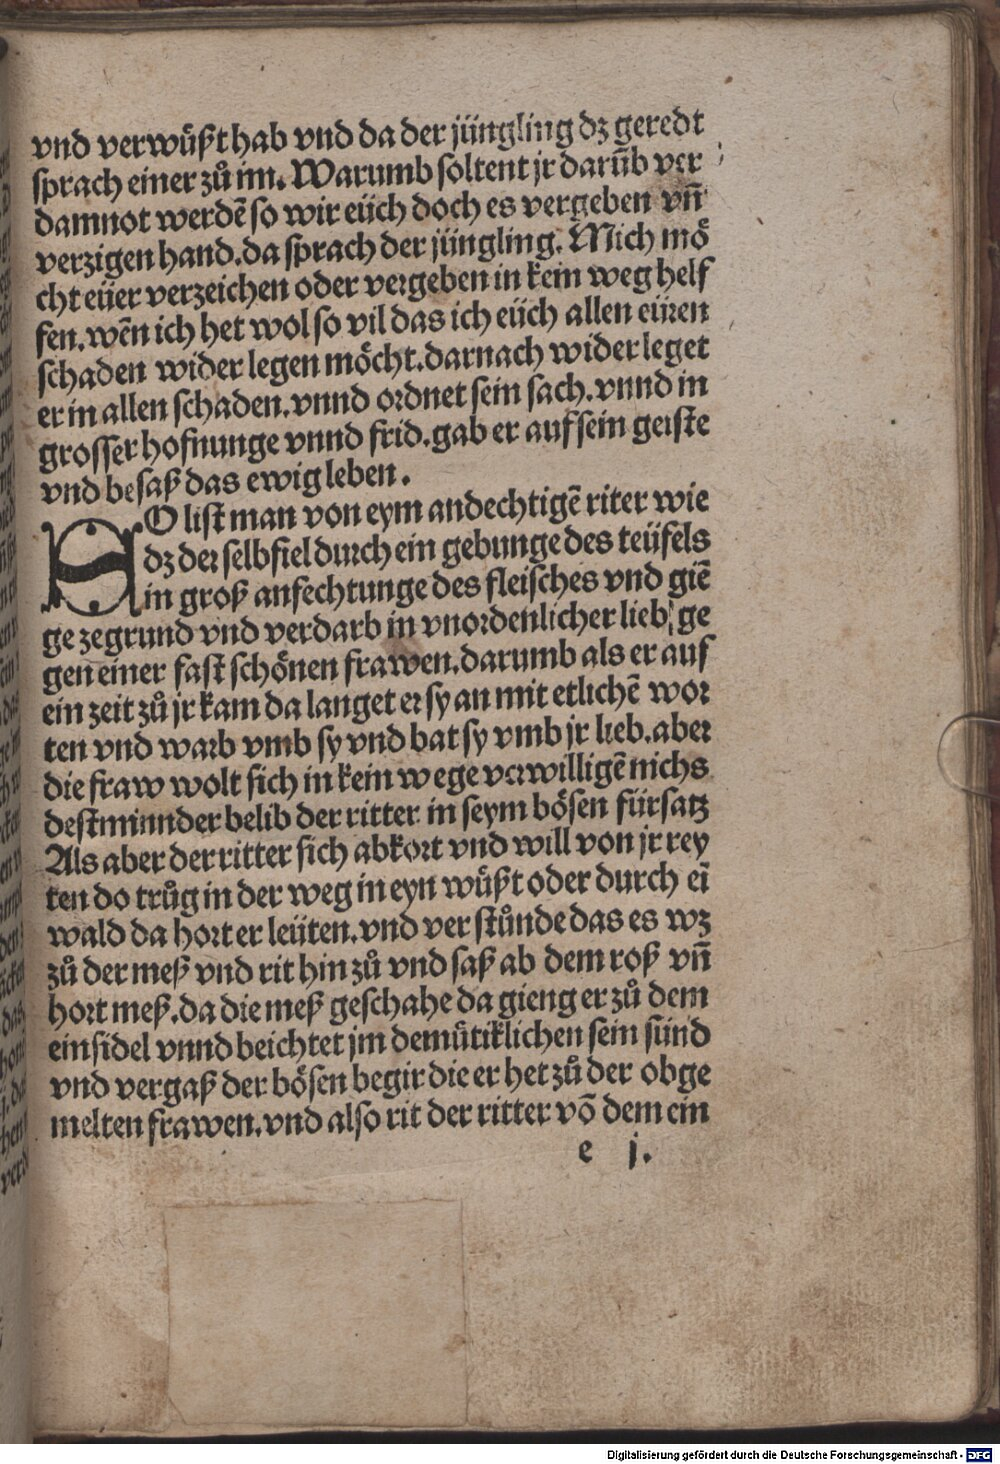 vnd verwüßt hab vnd da der jüngling dz geredt
sprach einer zů im. Warumb soltent jr darūb ver
damnot werdē so wir eüch doch es vergeben vn̄
verzigen hand. da sprach der jüngling. Mich mö
cht eüer verzeichen oder vergeben in kein weg helf
fen. wēn ich het wol so vil das ich eüch allen eüren
schaden wider legen möcht. darnach wider leget
er in allen schaden. vnnd ordnet sein sach. vnnd in
grosser hofnunge vnnd frid. gab er auf sein geiste
vnd besaß das ewig leben.
SO list man von eym andechtigē riter wie
dz der selb fiel durch ein gebunge des teüfels
in groß anfechtunge des fleisches vnd giē
ge ze grund vnd verdarb in vnordenlicher lieb ge
gen einer fast schönen frawen. darumb als er auf
ein zeit zů jr kam da langet er sy an mit etlichē wor
ten vnd warb vmb sy vnd bat sy vmb jr lieb. aber
die fraw wolt sich in kein wege verwilligē nichs
destminnder belib der ritter in seym bösen fürsatz
Als aber der ritter sich abkort vnd will von jr rey
ten do trůg in der weg in eyn wüßt oder durch eī
wald da hort er leüten. vnd verstůnde das es wz
zů der meß vnd rit hin zů vnd saß ab dem roß vn̄
hort meß. da die meß geschahe da gieng er zů dem
einsidel vnnd beichtet jm demütiklichen sein sünd
vnd vergaß der bösen begir die er het zů der obge
melten frawen. vnd also rit der ritter vō dem ein
e j.
Digitalisierung gefördert durch die Deutsche Forschungsgemeinschaft - DFG